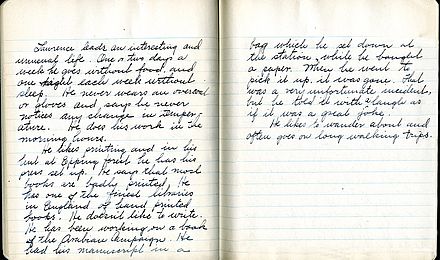 Lawrence leads an interesting and
unusual life. One or two days a
week he goes without food, and
one night each week without
sleep. He never wears an overcoat
or gloves and says he never
notices any change in temper-
ature. He does his work in the
morning hours.
He likes printing and in his
hut at Epping Forest he has his
press set up. He says that most
books are badly printed. He
has one of the finest libraries
in England of hand printed
books. He doesn't like to write.
He has been working on a book
of the Arabian Campaign. He
had his manuscript in a
bag which he set down at
the station while he bought
a paper. When he went to
pick it up, it was gone. That
was a very unfortunate incident,
but he told it with a laugh as
if it was a great joke.
He likes to wander about and
often goes on long walking trips.